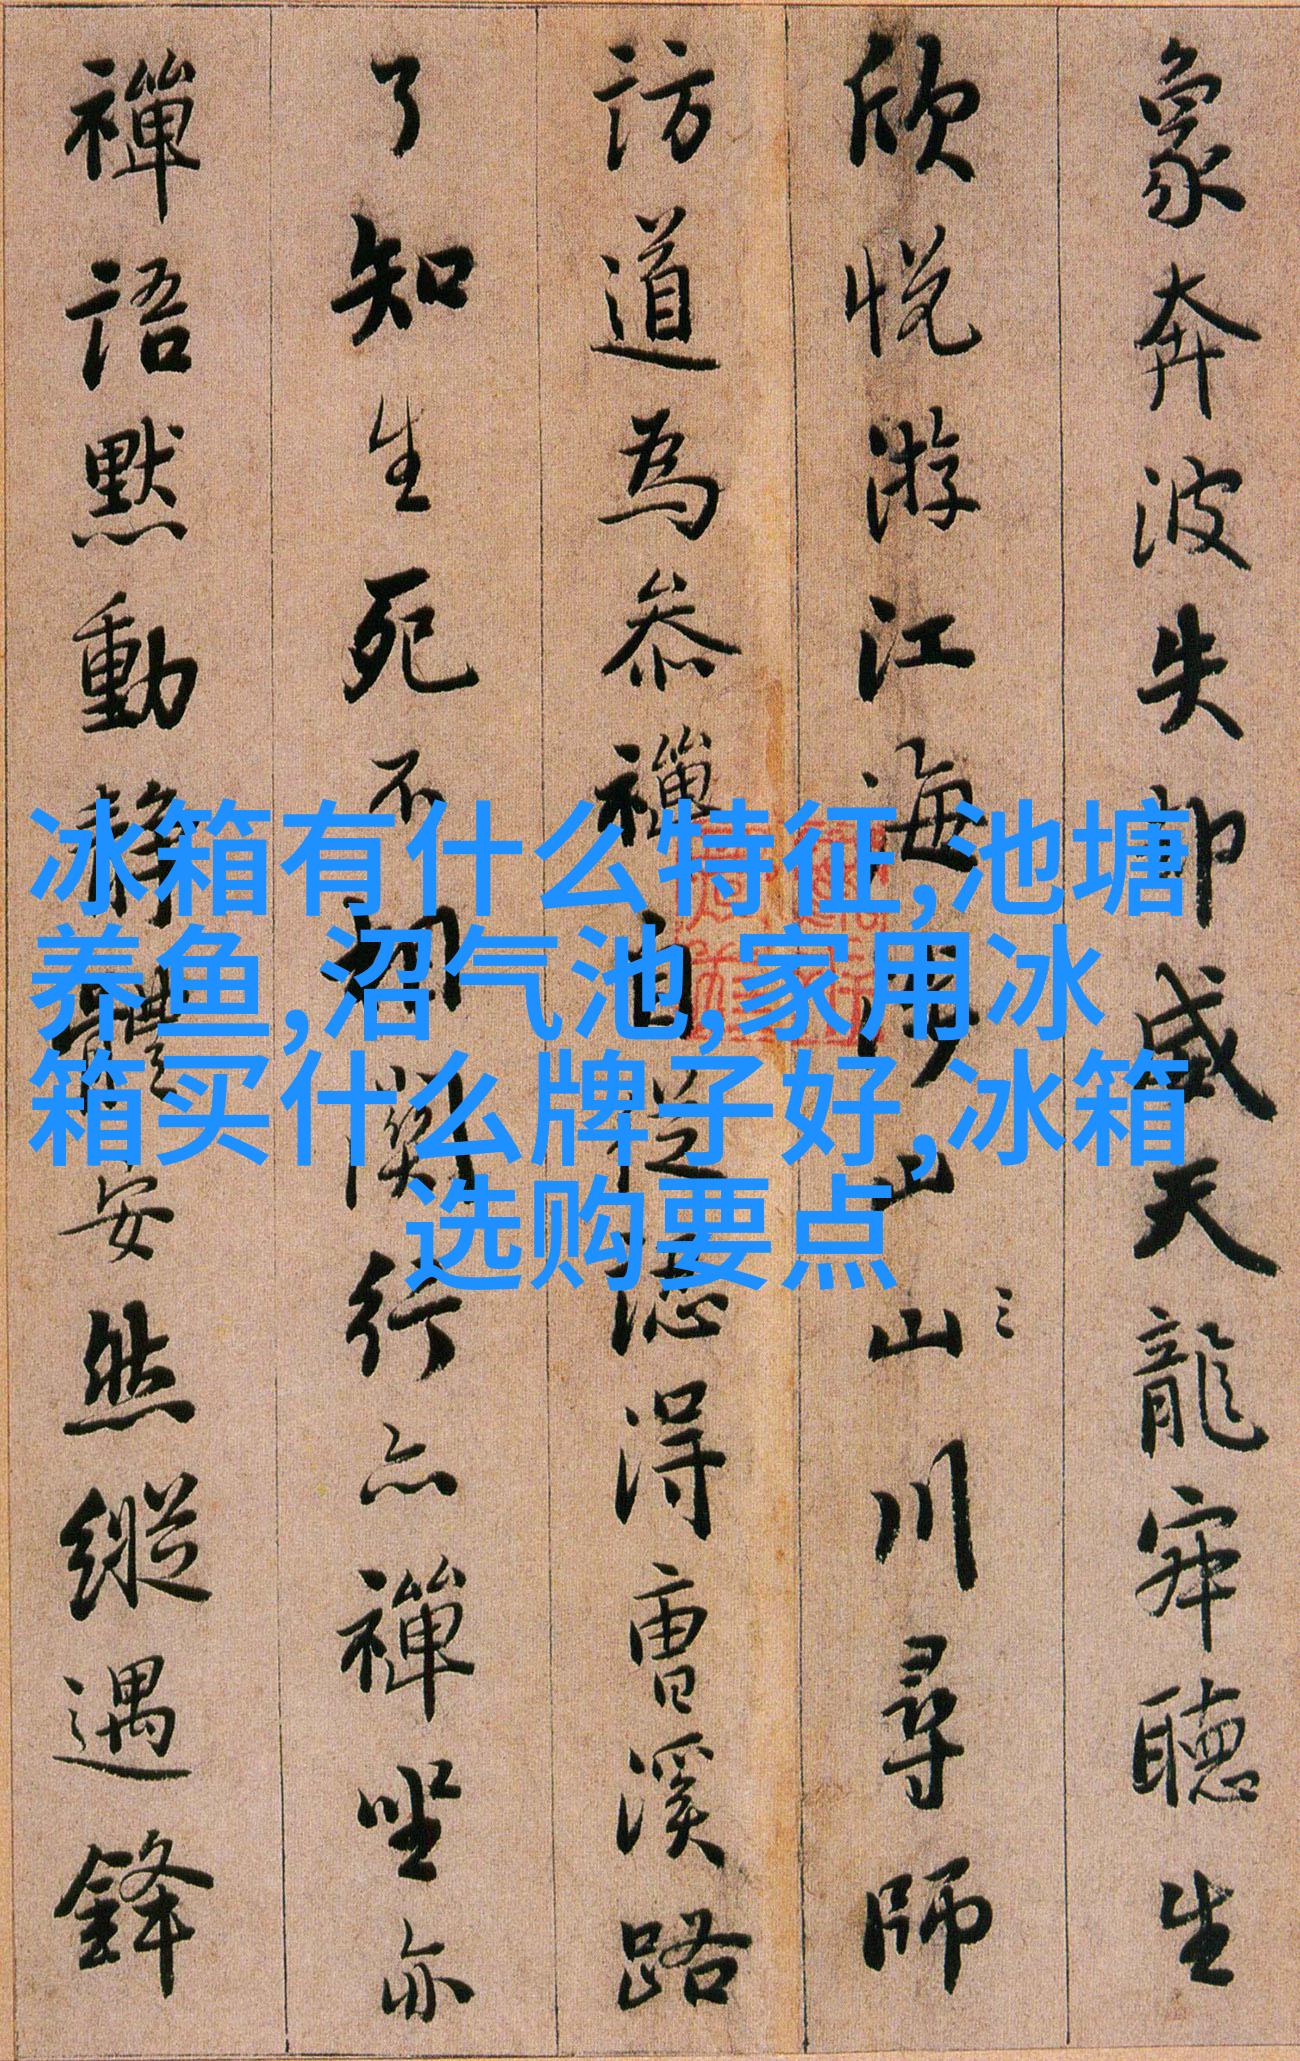 冰箱有什么特征,池塘
养鱼,沼气池,家用冰
箱买什么牌子好,冰箱
选购要点
象奔波失却威天龍寂聽生
欣悅游江海涉山山川尋師
訪道為叅禪自從認得曹溪路
了知生死不相關行亦禪坐亦
禪語默動靜體安然縱遇鋒